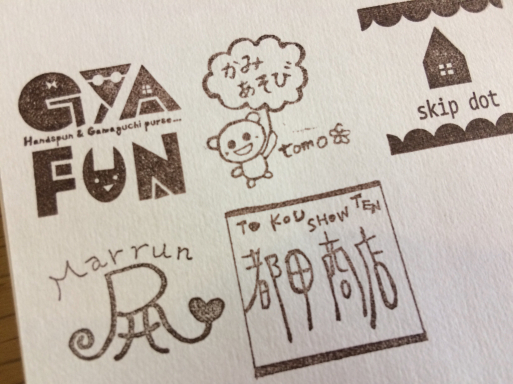 GYA
Handspun & Gamaguchi purse...
FUN
かみ
あそび
tomo
skip dot
Marrun
TO KOU SHOW TEN
都甲商店